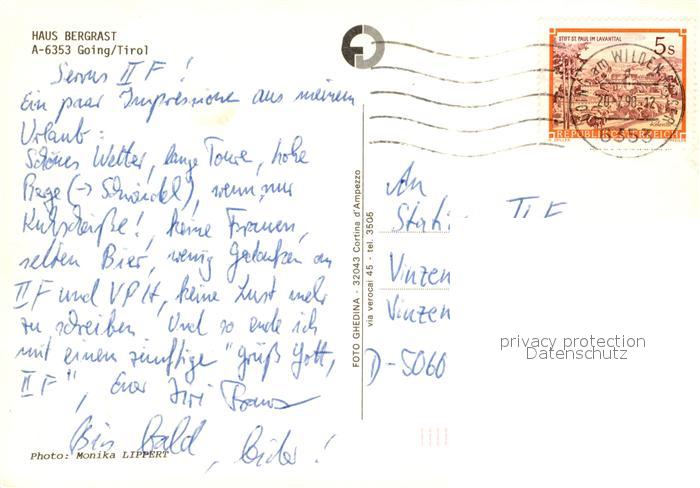 HAUS BERGRAST
A-6353 Going/Tirol
Servus II F !
Ein paar Impressionen aus meinem
Urlaub:
Schönes Wetter, lange Toure, hohe
Berge (→ Schwindel), wenn nur
Kuhscheiße!, keine Frauen,
selten Bier, wenig Gedanken an
II F und VPH, keine Lust mehr
zu schreiben. Und so ende ich
mit einen zünftige "grüß Gott,
II F", Euer
Bis bald, leider !
Photo: Monika LIPPERT
FOTO GHEDINA - 32043 Cortina d'Ampezzo
via verocai 45 - tel. 3505
STIFT ST. PAUL IM LAVANTTAL
5 S
REPUBLIK ÖSTERREICH
am WILDEN KAISER
90-12
6353
An
II F
Vinzen
Vinzen
D-5060
privacy protection
Datenschutz